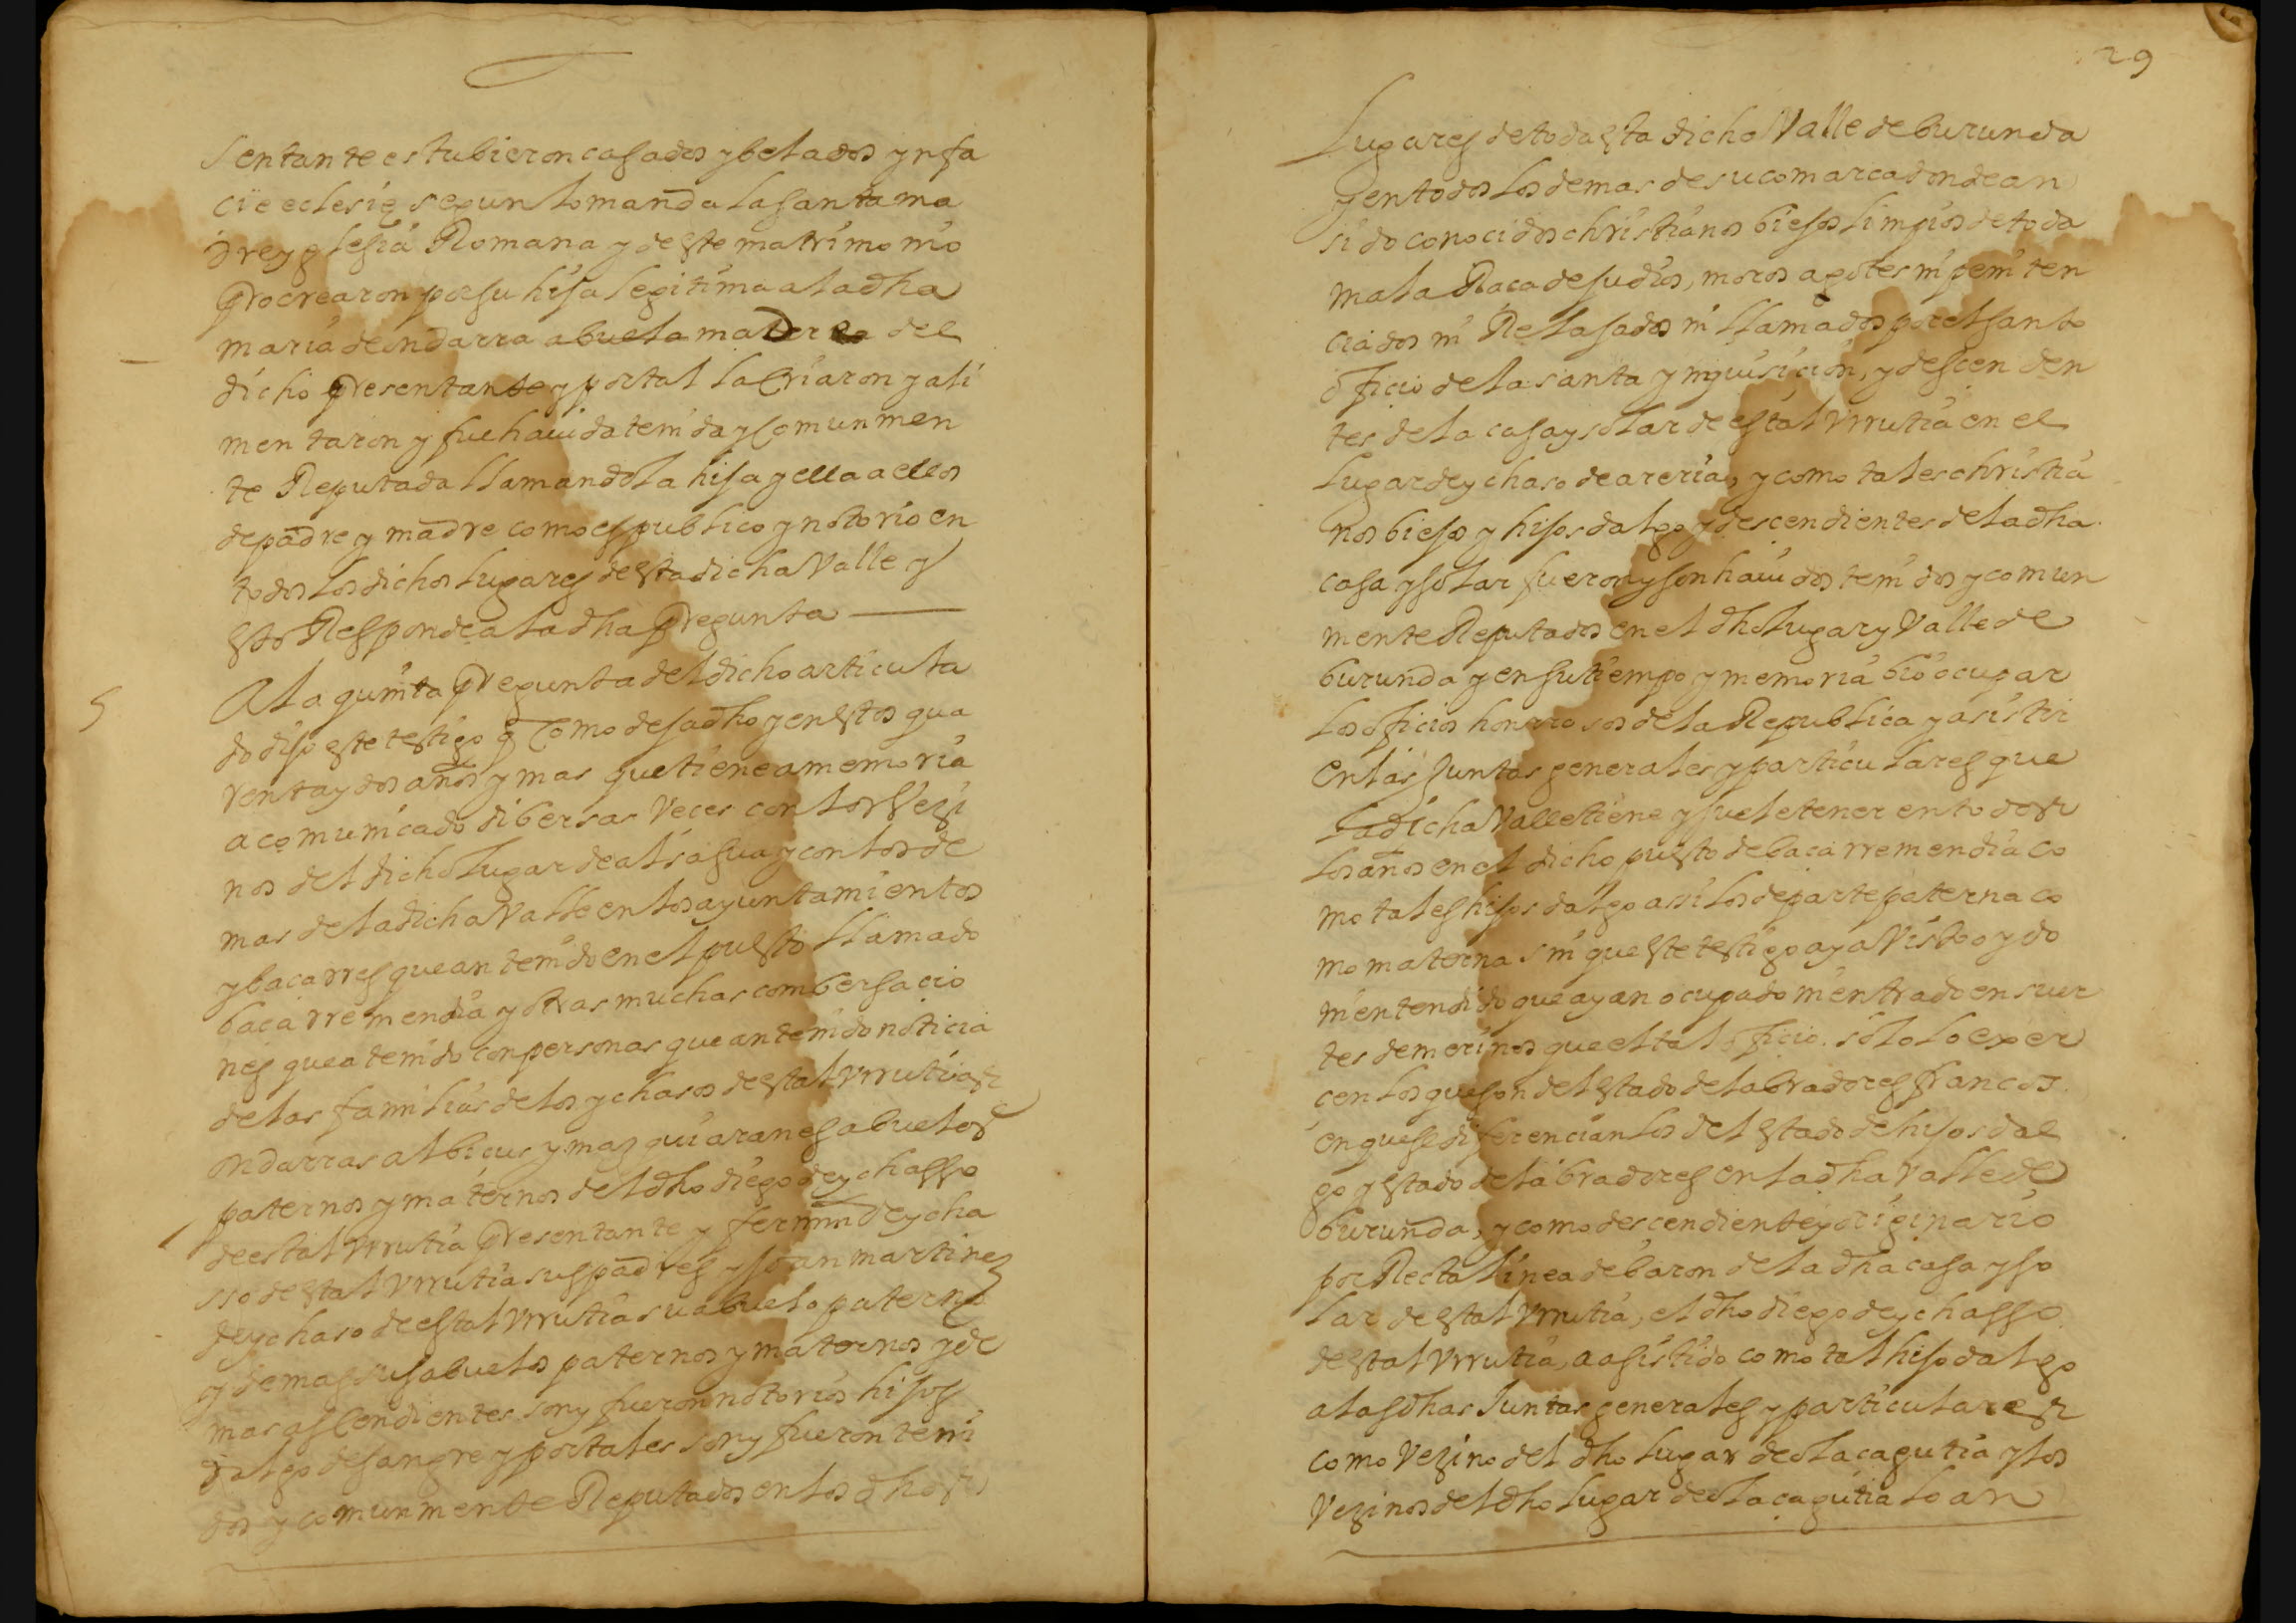 sentante estubieron casados y belados ynfa
cie eclesię segun lo manda la santa ma
dre yglesia Romana y de este matrimonio
Procrearon por su hija legitima a la dha
maria de ondarra abuela materna del
dicho presentante y por tal la criaron y ali
mentaron y fue hauida tenida y comunmen
te Reputada llamandola hija y ella a ellos
de padre y madre como es publico y notorio en
todos los dichos lugares de esta dicha Valle y
esto Responde a la dha Pregunta
5
A la quinta Pregunta del dicho articula
do dijo este testigo q como deja dho y en estos qua
renta y dos años y mas que tiene a memoria
a comunicado dibersas Veces con los Vezi
nos del dicho lugar de alsasua y con los de
mas de la dicha Valle en los ayuntamientos
y baçarres que an tenido en el puesto llamado
baçarremendia y otras muchas combersacio
nes que a tenido con personas que an tenido noticia
de las familias de los ychasos de estal Vrrutias
ondarras albicus y mazquiaranes abuelos
paternos y maternos del dho diego de ychasso
de estal Vrrutia Presentante y fermin de ycha
sso de estal Vrrutia sus padres y joan martinez
de ychaso de estal Vrrutia su abuelo paterno
y demas sus abuelos paternos y maternos y de
mas ascendientes son y fueron notorios hijos
dalgo de sangre y por tales son y fueron teni
dos y comunmente Reputados en los dhos
29
Lugares de toda esta dicha Valle de burunda
y en todos los demas de su comarca donde an
sido conocidos christianos biejos limpios de toda
mala Raca de judios, moros agotes ni peniten
ciados ni Relajados ni llamados por el santo
oficio de la santa ynquisicion, y descenden
tes de la casa y solar de estal Vrrutia en el
lugar de ychaso de areria, y como tales christia
nos biejos y hijos dalgo y descendientes de la dha
casa y solar fueron y son hauidos tenidos y comun
mente Reputados en el dho lugar y Valle de
burunda y en su tiempo y memoria bio ocupar
los oficios honrrosos de la Republica y asistir
en las Juntas generales y particulares que
la dicha Valle tiene y suele tener en todos
los años en el dicho puesto de bacarremendia co
mo tales hijos dalgo assi los de parte paterna co
mo materna sin que este testigo aya Visto oydo
ni entendido que ayan ocupado ni entrado en suer
tes de merinos que el tal oficio. solo lo exer
cen los que son del estado de labradores francos.
en que se diferencian los del estado de hijos dal
go y estado de labradores en la dha Valle de
burunda, y como descendiente y originario
por Recta linea de baron de la dha casa y so
lar de estal Vrrutia, el dho diego de ychasso
de estal Vrrutia, a asistido como tal hijo dalgo
a las dhas Juntas generales y particulares
como Vezino del dho lugar de olacagutia y los
Vezinos del dho lugar de olaçagutia lo an